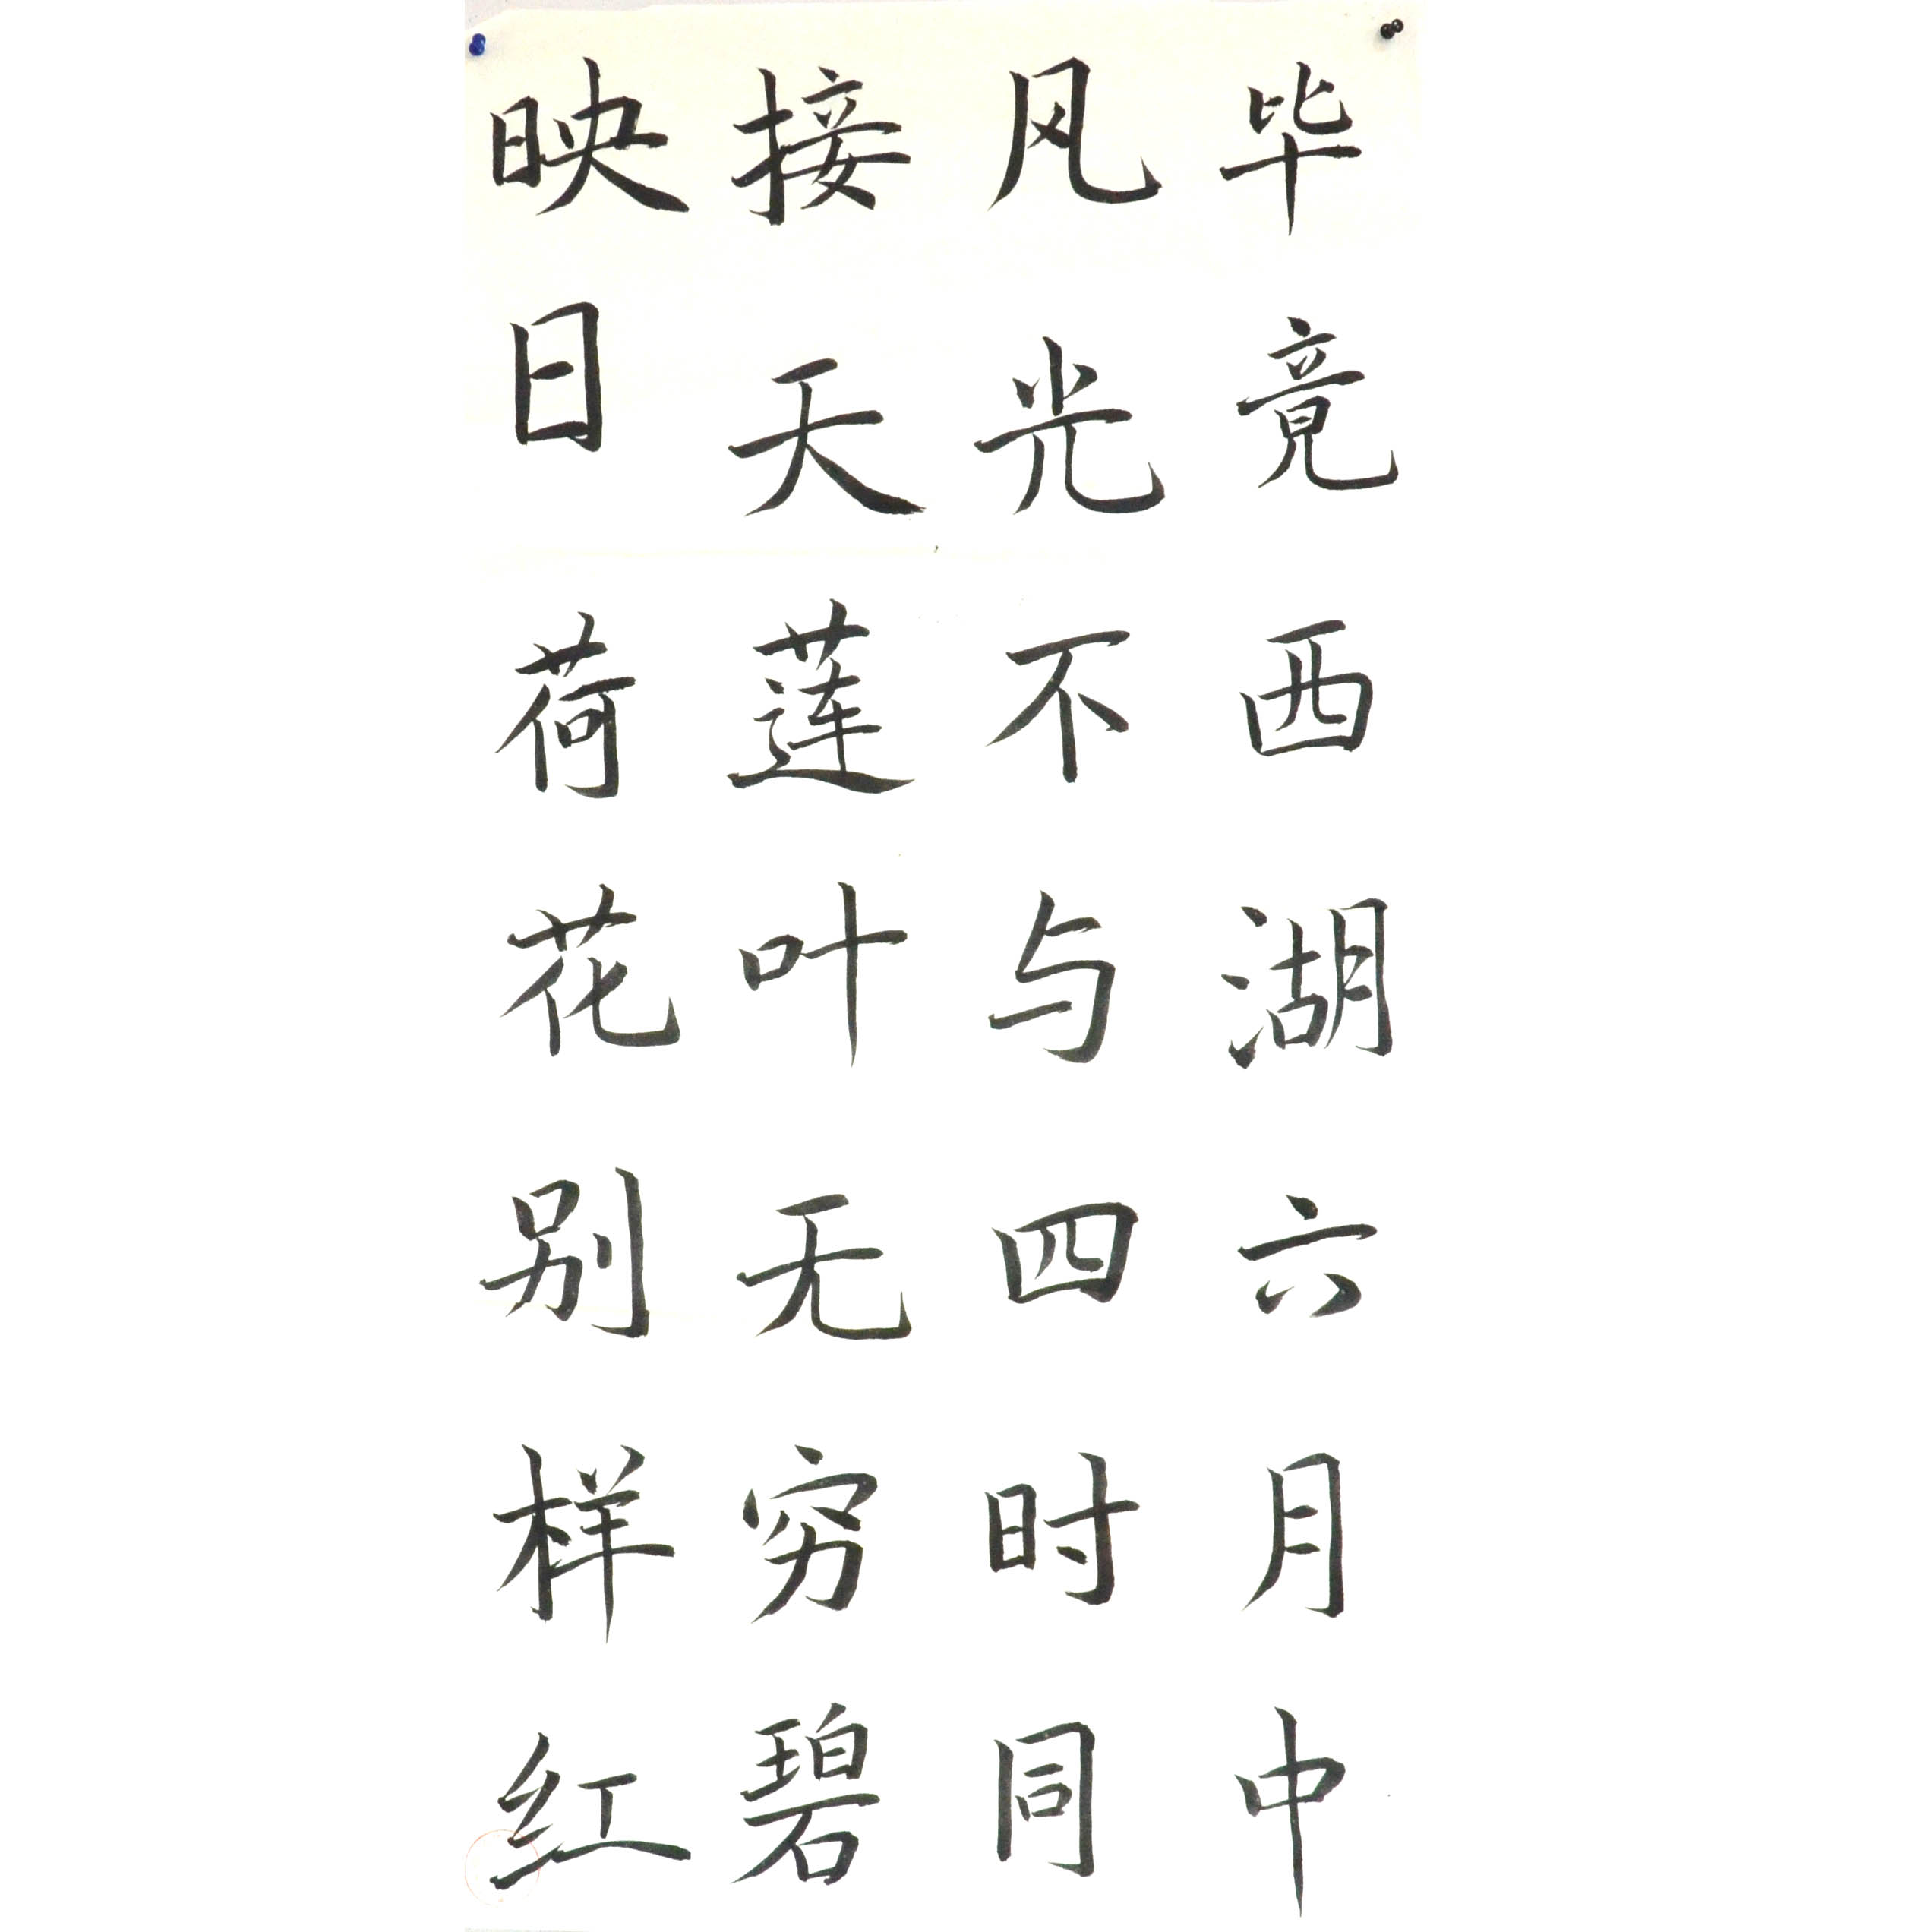 毕竟西湖六月中
风光不与四时同
接天莲叶无穷碧
映日荷花别样红